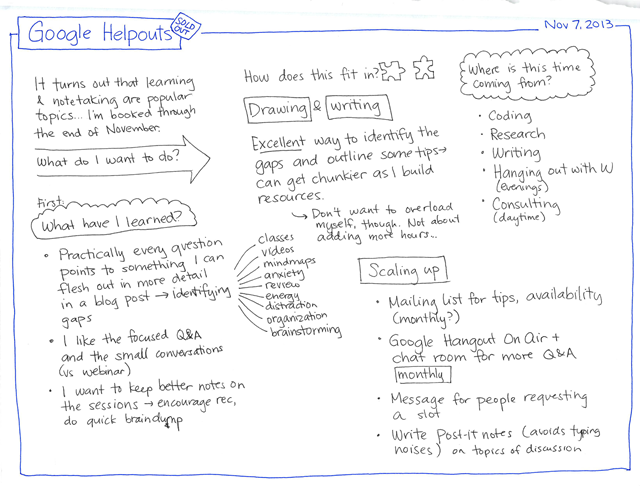 Google Helpouts
SOLD OUT
Nov 7, 2013
It turns out that learning
& notetaking are popular
topics... I'm booked through
the end of November.
What do I want to do?
First,
What have I learned?
• Practically every question
points to something I can
flesh out in more detail
in a blog post → identifying
gaps
classes
videos
mindmaps
anxiety
review
energy
distraction
organization
brainstorming
• I like the focused Q&A
and the small conversations
(vs webinar)
• I want to keep better notes on
the sessions → encourage rec,
do quick braindump
How does this fit in?
Drawing & Writing
Excellent way to identify the
gaps and outline some tips →
can get chunkier as I build
resources.
↳ Don't want to overload
myself, though. Not about
adding more hours...
Where is this time
coming from?
• Coding
• Research
• Writing
• Hanging out with W
(evenings)
• Consulting
(daytime)
Scaling up
• Mailing list for tips, availability
(monthly?)
• Google Hangout On Air +
chat room for more Q&A
monthly
• Message for people requesting
a slot
• Write Post-it notes (avoids typing
noises) on topics of discussion